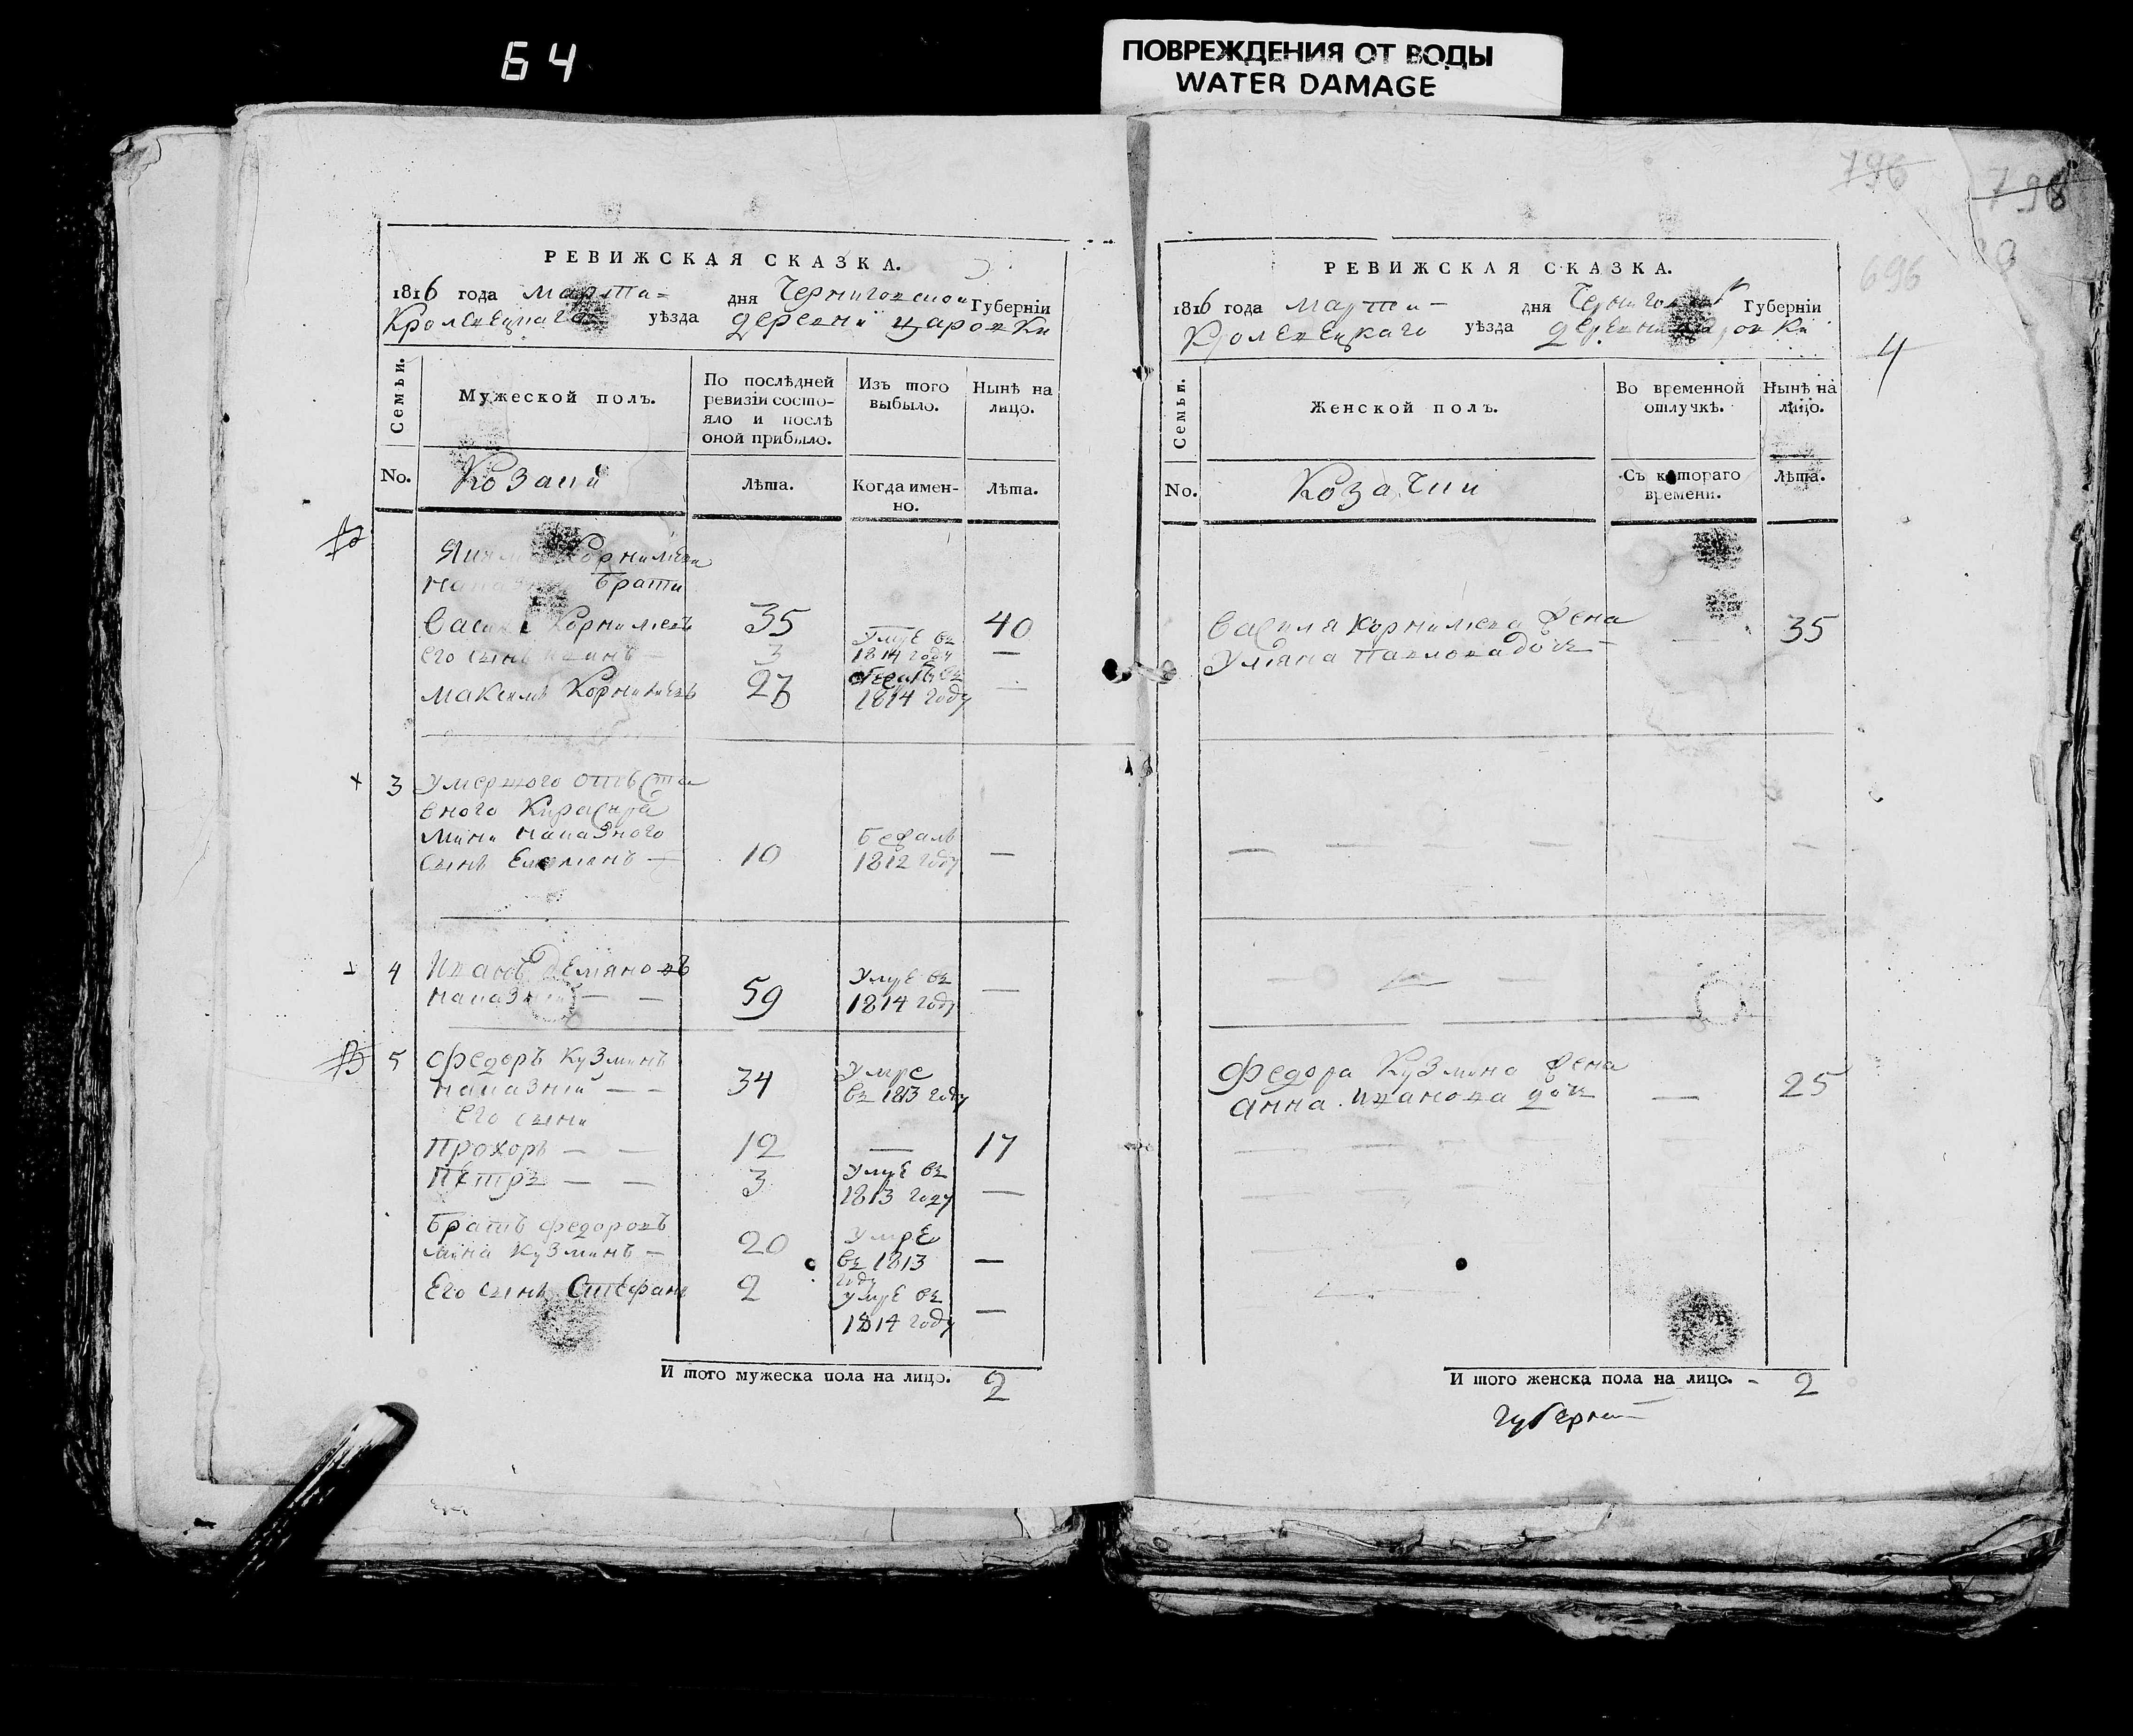 64
ПОВРЕЖДЕНИЯ ОТ ВОДЫ
WATER DAMAGE
РЕВИЖСКАЯ СКАЗКА.
1816 года марта дня Черниговской Губерніи
Кролевецкаго уѣзда деревни царовки
Семьи.
Мужеской полъ.
По послѣдней
ревизіи состо-
яло и послѣ
оной прибыло.
Изъ того
выбыло.
Нынѣ на
лицо.
No.
Козаки
Лѣта.
Когда имен-
но.
Лѣта.
Корниліева
брати
Васили Корниліевъ 35 40
его сынъ иванъ — 3 Умре въ 1814 году —
максимъ Корниліевъ 1814 году —
3 умершого отъста
вного Кирасира
мини напазного
сынъ — 10 Бежалъ 1812 году —
4 Иванъ Деміяновъ
напазний — — 59 Умре въ 1814 году —
5 Федоръ Кузминъ
напазний — — 34 Умре въ 1813 году
его сыни
Прохоръ — — 12 — 17
Петръ — — 3 Умре въ 1813 году —
Братъ федоровъ
мина Кузминъ — 20 Умре въ 1813 году —
Его сынъ Стефанъ 2 умре въ 1814 году —
И того мужеска пола на лицо. 2
796
798
696
4
РЕВИЖСКАЯ СКАЗКА.
1816 года марта — дня Губерніи
Кролевецкаго уѣзда
Семьи.
Женской полъ.
Во временной
отлучкѣ.
Нынѣ на
лицо.
No.
Козачки
Съ котораго
времени.
Лѣта.
Василя Корниліева жена
Уліяна павлова дочь — 35
Федора Кузмина жена
Анна Иванова дочь — 25
И того женска пола на лицо. - 2
губерни